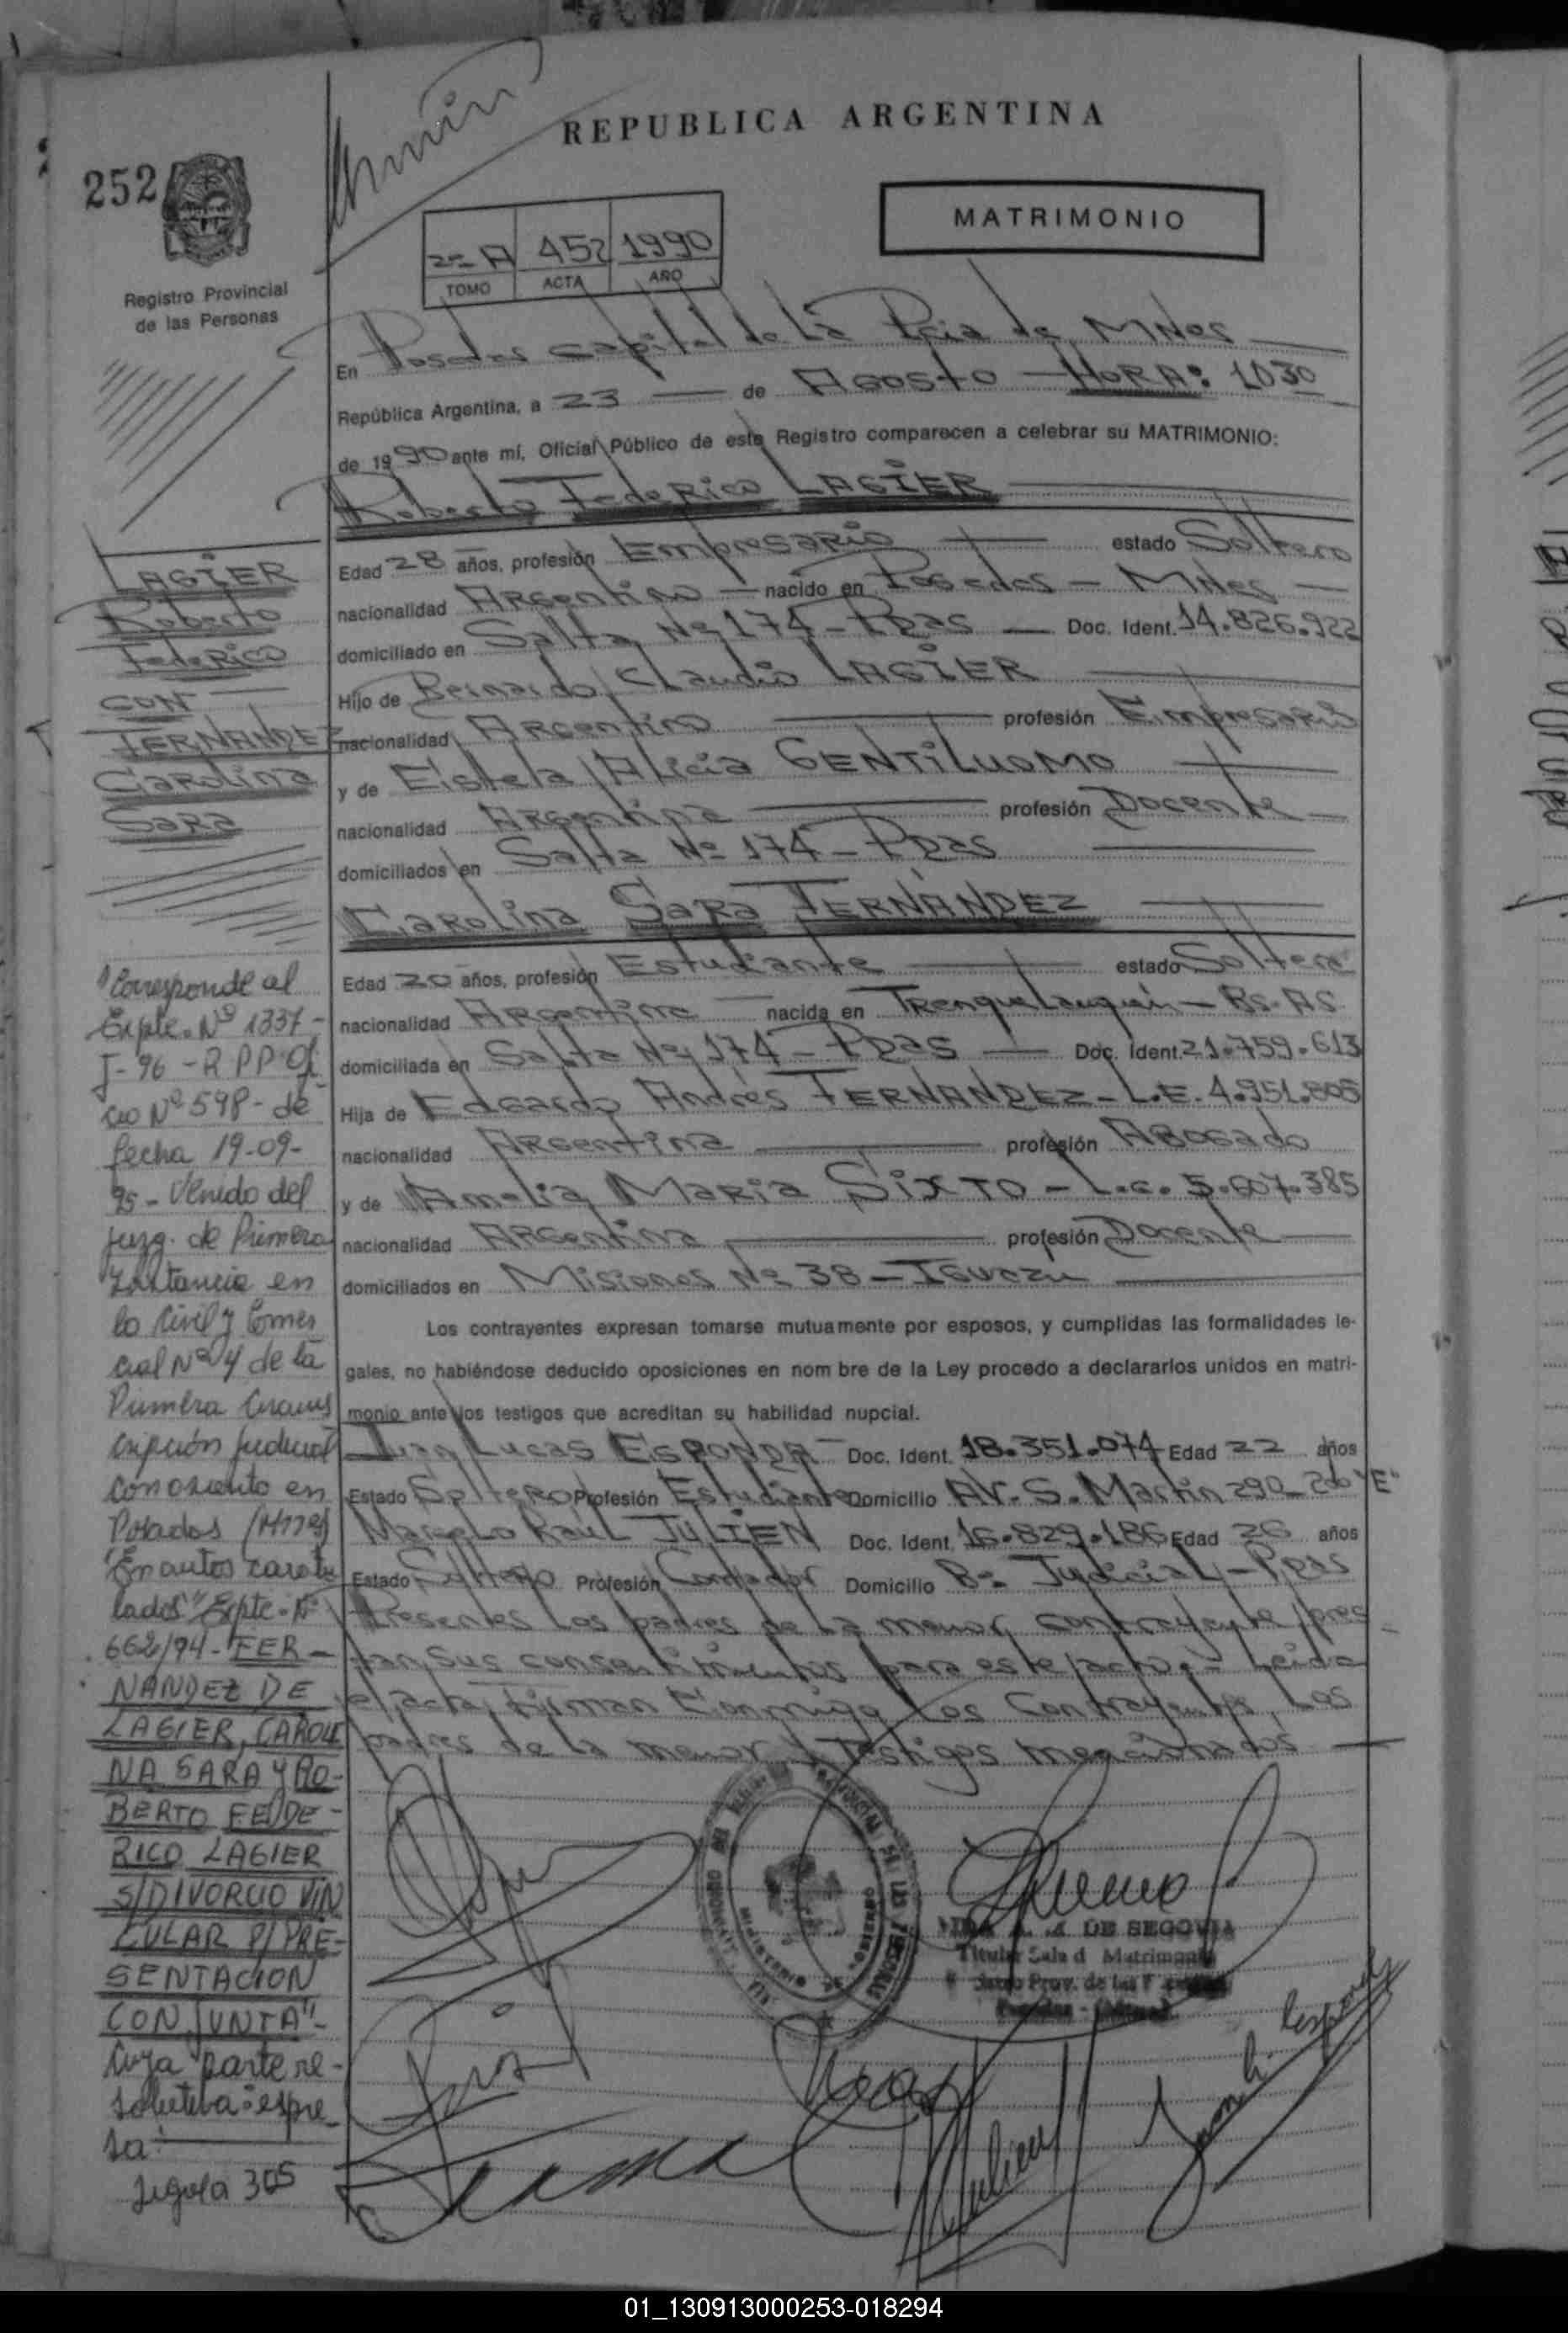 REPUBLICA ARGENTINA
252
MATRIMONIO
2º A 452 1990
TOMO ACTA AÑO
Registro Provincial
de las Personas
En Posadas Capital de La Pcia de Mnes
República Argentina, a 23 de Agosto - HORA: 1030
de 1990 ante mí, Oficial Público de este Registro comparecen a celebrar su MATRIMONIO:
Roberto Federico LAGIER
Edad 28 años, profesión Empresario estado Soltero
nacionalidad Argentino nacido en Posadas - Mnes
domiciliado en Salta Nº 174 - Pdas Doc. Ident. 14.826.922
Hijo de Bernardo Claudio LAGIER
nacionalidad Argentino profesión Empresario
y de Estela Alicia GENTILUOMO
nacionalidad Argentina profesión Docente
domiciliados en Salta Nº 174 - Pdas
Carolina Sara FERNÁNDEZ
Edad 20 años, profesión Estudiante estado Soltera
nacionalidad Argentina nacida en Trenque Lauquen - Bs. As.
domiciliada en Salta Nº 174 - Pdas Doc. Ident. 21.759.613
Hija de Edgardo Andrés FERNANDEZ - L.E. 4.951.805
nacionalidad Argentina profesión Abogado
y de Amelia Maria SIXTO - L.C. 5.607.385
nacionalidad Argentina profesión Docente
domiciliados en Misiones Nº 38 - Iguazu
Los contrayentes expresan tomarse mutuamente por esposos, y cumplidas las formalidades le-
gales, no habiéndose deducido oposiciones en nom bre de la Ley procedo a declararlos unidos en matri-
monio ante los testigos que acreditan su habilidad nupcial.
Juan Lucas ESPONDA Doc. Ident. 18.351.074 Edad 22 años
Estado Soltero Profesión Estudiante Domicilio AV. S. Martin 290 "E"
Marcelo Raúl JULIEN Doc. Ident. 16.829.186 Edad 26 años
Estado Soltero Profesión Contador Domicilio Bº Judicial - Pdas
Presentes Los padres de La menor contrayente, pres
tan sus consentimientos para este acto.- Leida
el acta, Firman Conmigo Los Contrayentes, Los
padres de La menor y testigos mencionados
LAGIER
Roberto
Federico
CON
FERNANDEZ
Carolina
Sara
"Corresponde al
Expte. Nº 1337-
J-96 - R P P Ofi
cio Nº 598 - de
fecha 19-09-
95 - Venido del
Juzg. de Primera
Instancia en
lo Civil y Comer
cial Nº 4 de la
Primera Circuns
cripción Judicial
con asiento en
Posadas (Mnes)
"En autos caratu
lados" Expte. Nº
662/94 - FER-
NANDEZ DE
LAGIER, CAROLI
NA SARA Y RO-
BERTO FEDE-
RICO LAGIER
S/DIVORCIO VIN
CULAR P/PRE-
SENTACION
CONJUNTA"-
Cuya parte re-
solutiva: expre
sa:
DE SEGOVIA
Titular Sala d Matrimonio
Prov. de las
01_130913000253-018294